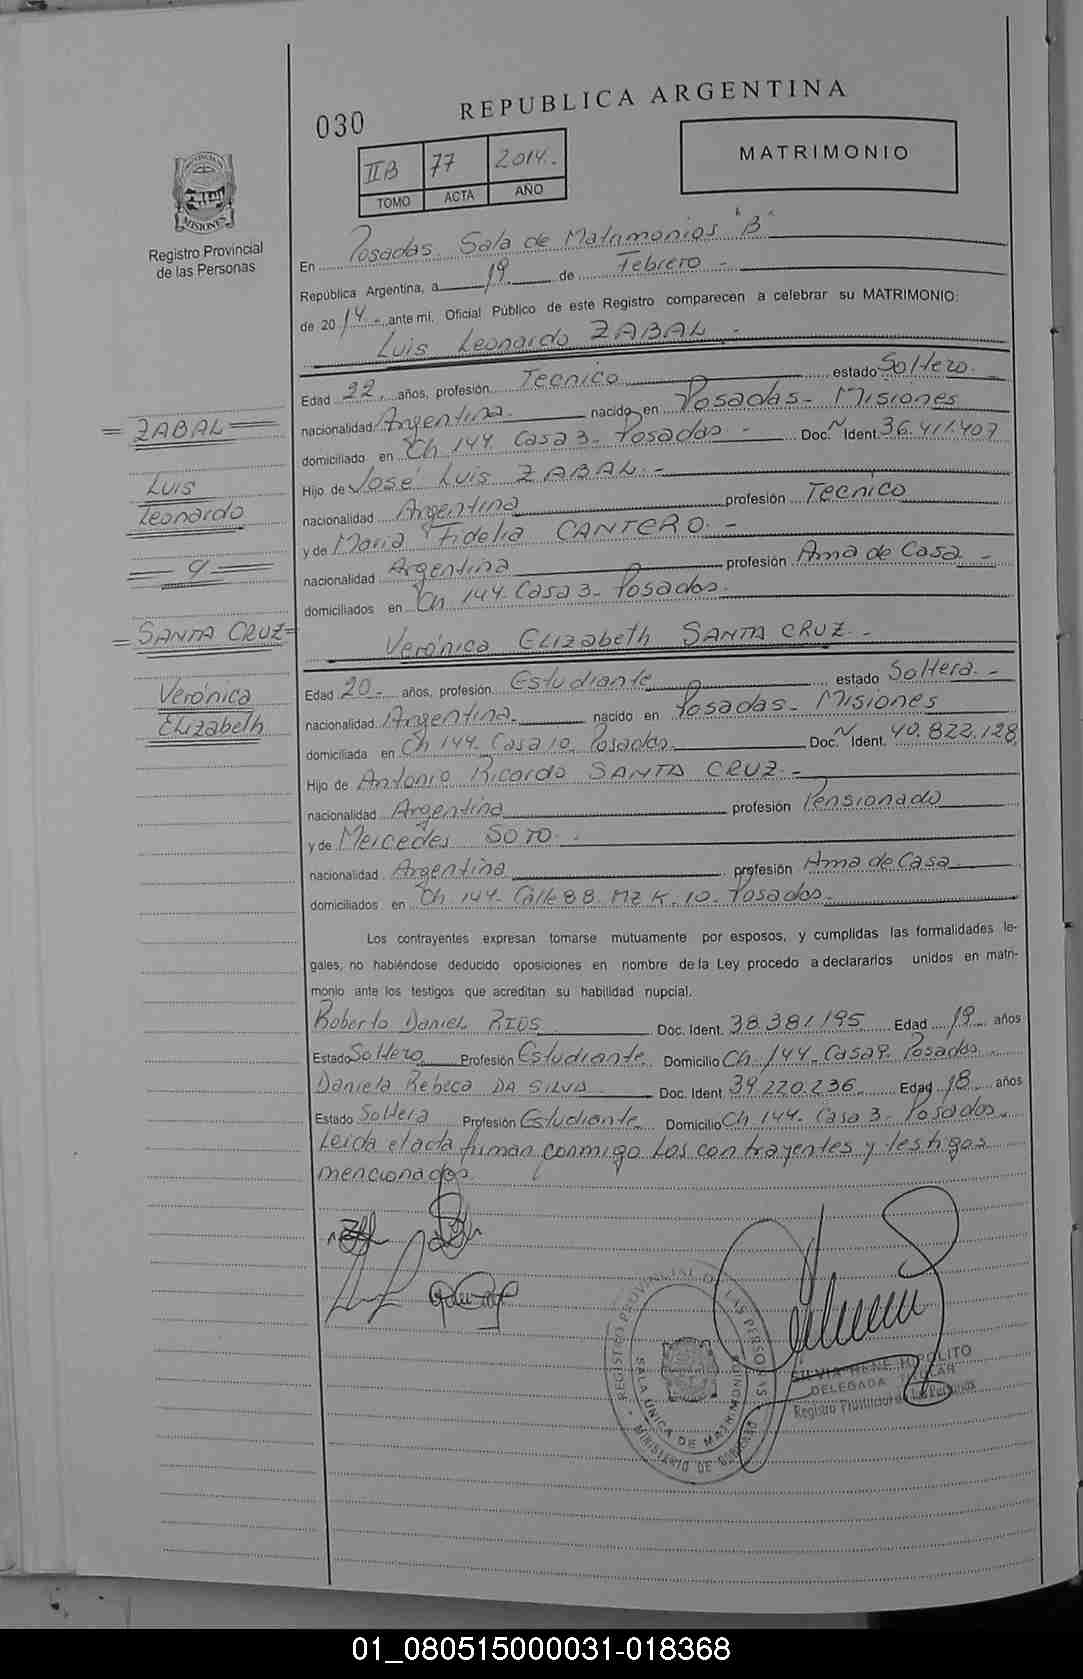 REPUBLICA ARGENTINA
030
MATRIMONIO
IIB 77 2014.-
TOMO ACTA AÑO
PROVINCIA DE
MISIONES
Registro Provincial
de las Personas
En Posadas. Sala de Matrimonios "B"
República Argentina, a 19 de Febrero -
de 2014 -, ante mí, Oficial Público de este Registro comparecen a celebrar su MATRIMONIO:
Luis Leonardo ZABAL -
Edad 22. años, profesión Tecnico estado Soltero. -
= ZABAL =
nacionalidad Argentina. nacido en Posadas - Misiones
domiciliado en Ch 144 Casa 3 - Posadas - Doc. N Ident. 36.411.407
Luis
Hijo de José Luis ZABAL. -
Leonardo
nacionalidad Argentina profesión Tecnico
y de Maria Fidelia CANTERO. -
= y =
nacionalidad Argentina profesión Ama de Casa -
domiciliados en Ch 144. Casa 3 - Posadas.
= SANTA CRUZ =
Verónica Elizabeth SANTA CRUZ. -
Verónica
Edad 20 - años, profesión Estudiante estado Soltera. -
Elizabeth
nacionalidad Argentina. nacido en Posadas - Misiones
domiciliada en Ch 144 - Casa 10. Posadas. Doc. N Ident. 40.822.128
Hijo de Antonio Ricardo SANTA CRUZ. -
nacionalidad Argentina profesión Pensionado
y de Mercedes SOTO. -
nacionalidad Argentina profesión Ama de Casa
domiciliados en Ch 144 - Calle 88. Mz K. 10 - Posadas.
Los contrayentes expresan tomarse mutuamente por esposos, y cumplidas las formalidades le-
gales, no habiéndose deducido oposiciones en nombre de la Ley procedo a declararlos unidos en matri-
monio ante los testigos que acreditan su habilidad nupcial.
Roberto Daniel RIOS Doc. Ident. 38.381.195 Edad 19 años
Estado Soltero Profesión Estudiante Domicilio Ch 144 - Casa 9. Posadas.
Daniela Rebeca DA SILVA Doc. Ident 39.220.236 Edad 18 años
Estado Soltera Profesión Estudiante Domicilio Ch 144. Casa 3 - Posadas.
Leida el acta firman conmigo los contrayentes y testigos
mencionados
REGISTRO PROVINCIAL DE LAS PERSONAS
SALA UNICA DE MATRIMONIOS
MINISTERIO DE GOBIERNO
SILVIA IRENE HIPOLITO
DELEGADA TITULAR
Registro Provincial de las Personas
01_080515000031-018368